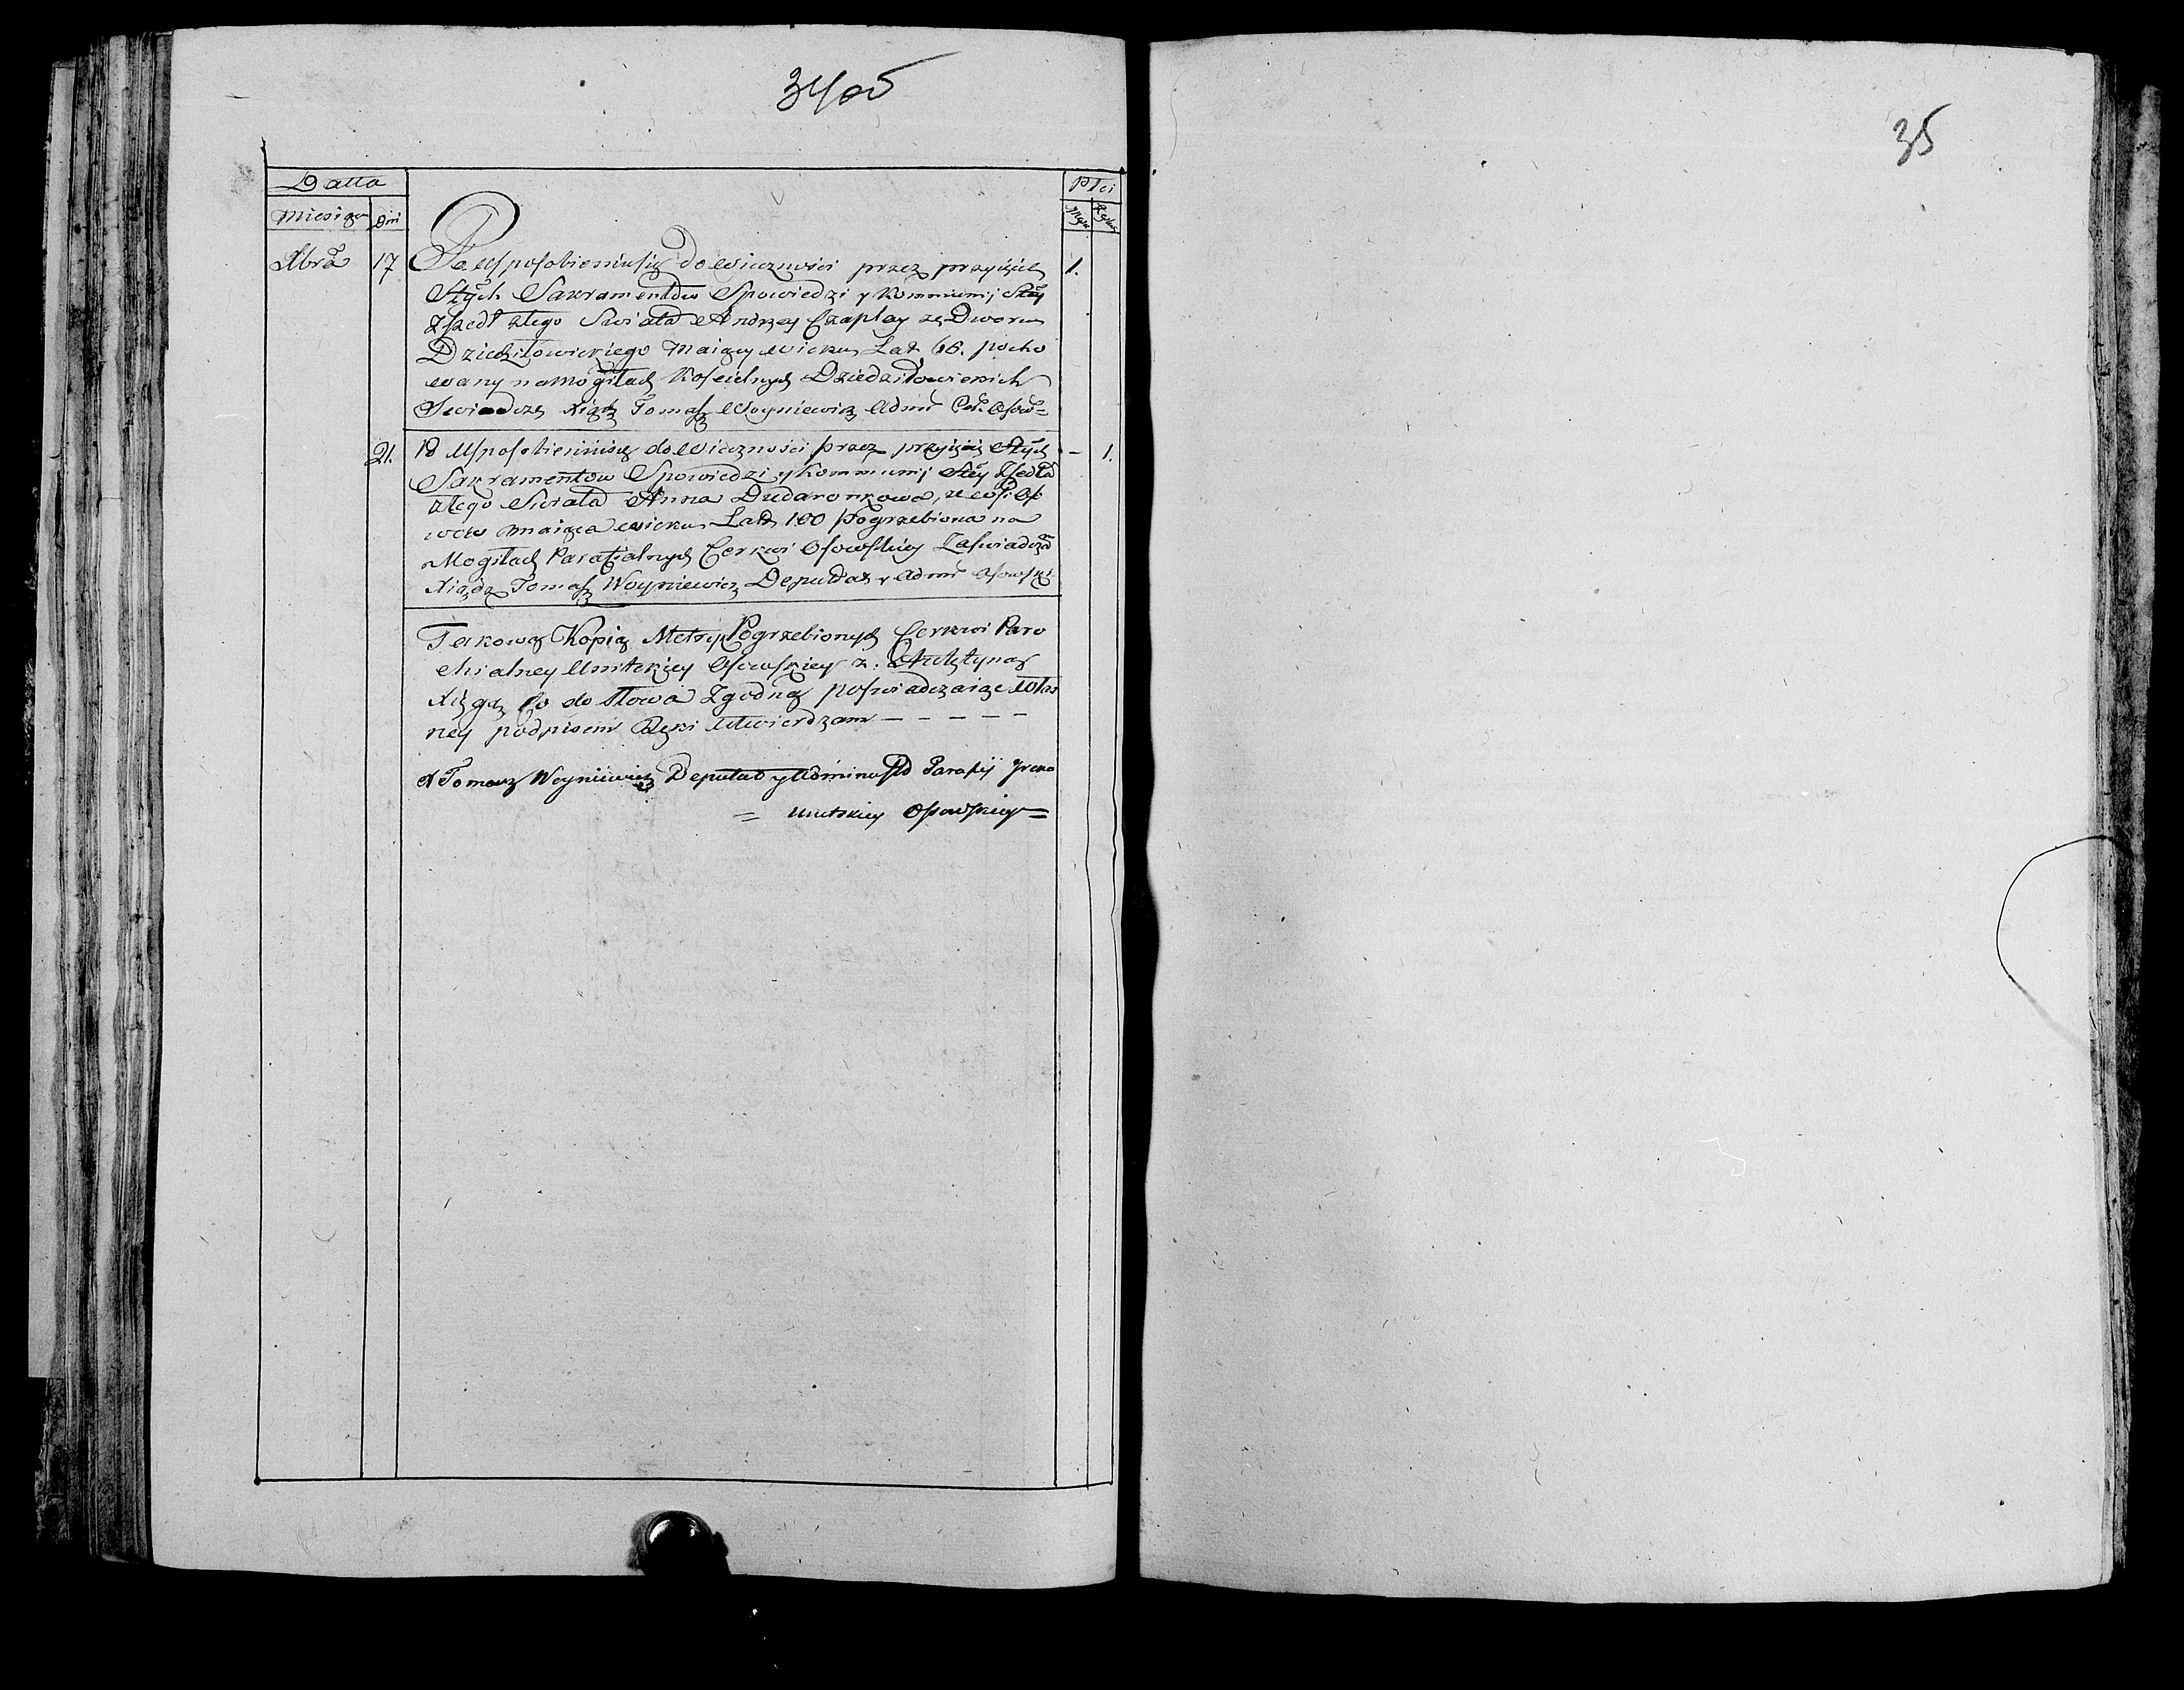 34 об
35
Datta
Płci
Miesiąca Dni
Męzka Zęńska
Xbra 17 Po Usposobieniu się do Wieczności przez przyięcie 1.
Stych Sakramentow Spowiedzi y Kommunij Stey
Zszedł ztego Swiata Andrzey Czaplay ze Dworu
Dziedziłowickiego Maiący wieku Lat 66. pocho
wany na Mogiłach Koscielnych Dziedziłowickich
Swiadczę Xiądz Tomasz Woyniewicz Admr Osow=
21. Po Usposobieniu się do Wieczności przez przyięcie Stych - 1.
Sakramentow Spowiedzi y Kommunij Stey Zszedła
ztego Swiata Anna Dudaronkowa, ze wsi Os
wow maiąca wieku Lat 100 Pogrzebiona na
Mogiłach Parafialnych Cerkwi Osowskiey Zaswiadcza
Xiądz Tomasz Woyniewicz Deputat y Admr Osowski
Takową Kopią Metryk Pogrzebionych Cerkwi Paro
chialney Unitskiey Osowskiey z. Autętyną
Xięgą Co do słowa Zgodną poswiadczaiąc włas
ney podpisem Ręki Utwierdzam - - - - -
X Tomasz Woyniewicz Deputat y Administr Parafij Greko
= Unitskiey Osowskiey =